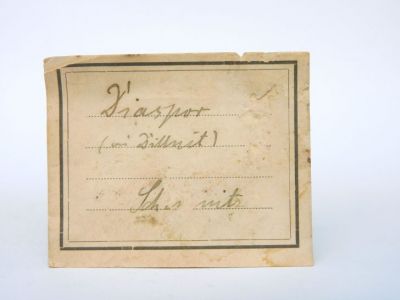 Diaspor
(in Dillnit)
Schemnitz